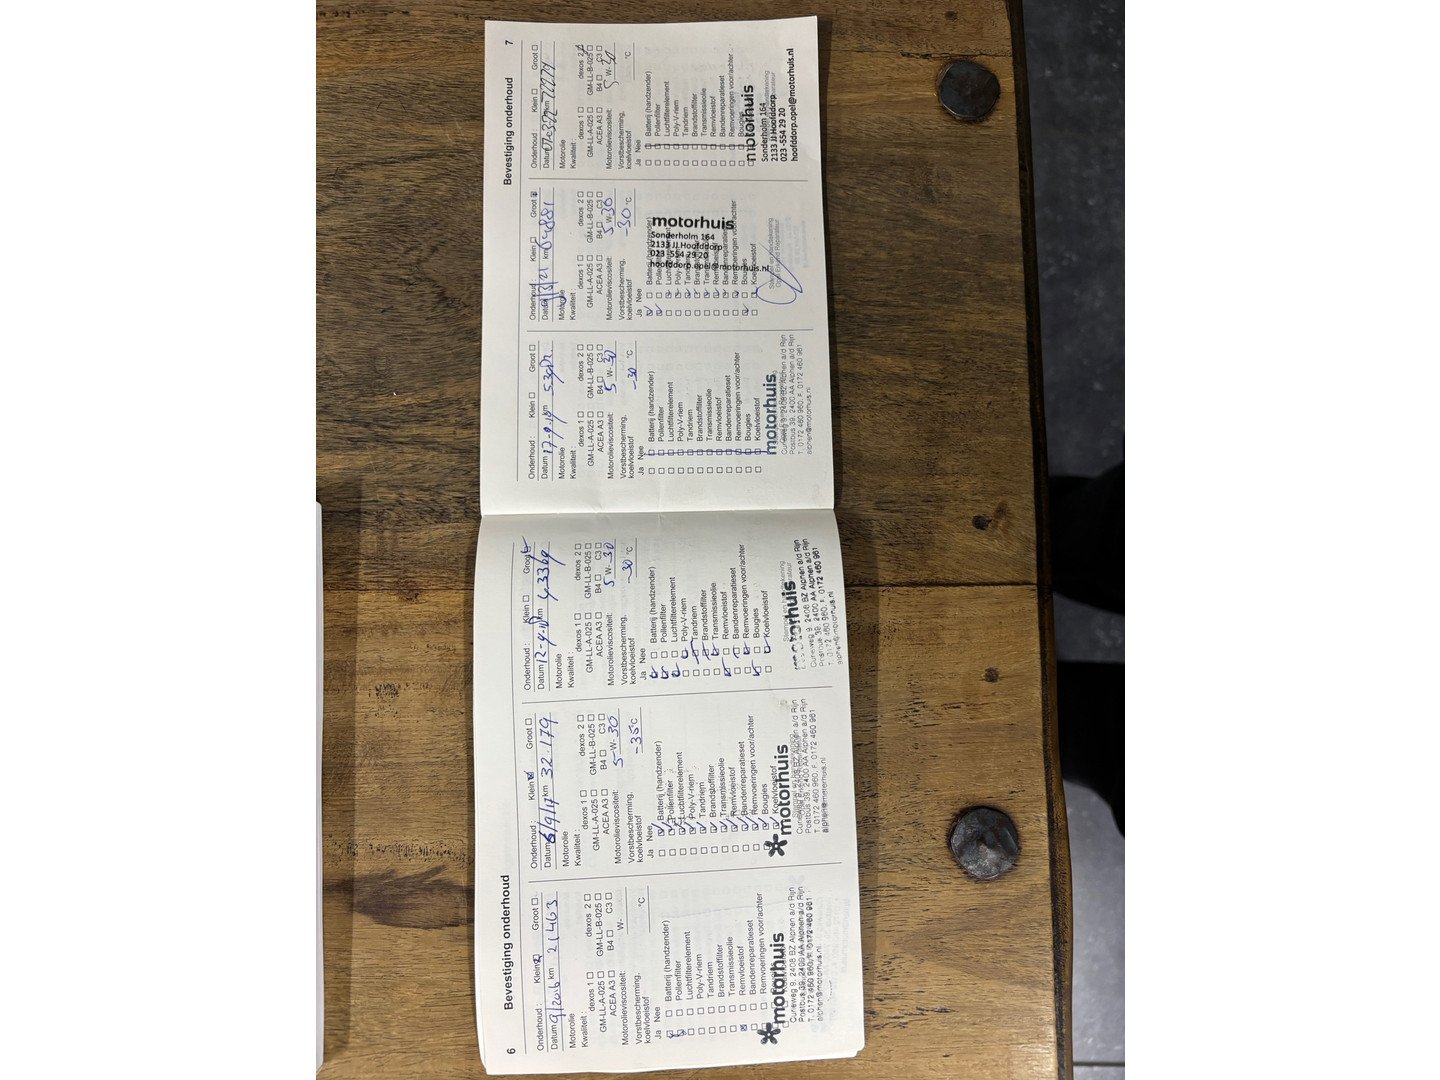 6 Bevestiging onderhoud
Onderhoud : Klein Groot
Datum 9/2016 km 21463
Motorolie
Kwaliteit :
dexos 1 dexos 2
GM-LL-A-025 GM-LL-B-025
ACEA A3 B4 C3
Motorolieviscositeit: W-
Vorstbescherming,
koelvloeistof °C
Ja Nee
Batterij (handzender)
Pollenfilter
Luchtfilterelement
Poly-V-riem
Tandriem
Brandstoffilter
Transmissieolie
Remvloeistof
Bandenreparatieset
Remvoeringen voor/achter
motorhuis
Curieweg 9, 2408 BZ Alphen a/d Rijn
Postbus 39, 2400 AA Alphen a/d Rijn
T. 0172 460 960, F. 0172 460 961
alphen@motorhuis.nl
Onderhoud : Klein Groot
Datum 6/9/17 km 32.179
Motorolie
Kwaliteit :
dexos 1 dexos 2
GM-LL-A-025 GM-LL-B-025
ACEA A3 B4 C3
Motorolieviscositeit: 5-W- 30
Vorstbescherming,
koelvloeistof -35°C
Ja Nee
Batterij (handzender)
Pollenfilter
Luchtfilterelement
Poly-V-riem
Tandriem
Brandstoffilter
Transmissieolie
Remvloeistof
Bandenreparatieset
Remvoeringen voor/achter
Bougies
Koelvloeistof
motorhuis
Curieweg 9, 2408 BZ Alphen a/d Rijn
Postbus 39, 2400 AA Alphen a/d Rijn
T. 0172 460 960, F. 0172 460 961
alphen@motorhuis.nl
Onderhoud : Klein Groot
Datum km
Motorolie
Kwaliteit :
dexos 1 dexos 2
GM-LL-A-025 GM-LL-B-025
ACEA A3 B4 C3
Motorolieviscositeit: 5 W- 30
Vorstbescherming,
koelvloeistof -30 °C
Ja Nee
Batterij (handzender)
Pollenfilter
Luchtfilterelement
Poly-V-riem
Tandriem
Brandstoffilter
Transmissieolie
Remvloeistof
Bandenreparatieset
Remvoeringen voor/achter
Bougies
Koelvloeistof
motorhuis
Curieweg 9, 2408 BZ Alphen a/d Rijn
Postbus 39, 2400 AA Alphen a/d Rijn
T. 0172 460 960, F. 0172 460 961
alphen@motorhuis.nl
Bevestiging onderhoud 7
Onderhoud : Klein Groot
Datum km
Motorolie
Kwaliteit :
dexos 1 dexos 2
GM-LL-A-025 GM-LL-B-025
ACEA A3 B4 C3
Motorolieviscositeit: 5 W- 30
Vorstbescherming,
koelvloeistof -30 °C
Ja Nee
Batterij (handzender)
Pollenfilter
Luchtfilterelement
Poly-V-riem
Tandriem
Brandstoffilter
Transmissieolie
Remvloeistof
Bandenreparatieset
Remvoeringen voor/achter
Bougies
Koelvloeistof
motorhuis
Curieweg 9, 2408 BZ Alphen a/d Rijn
Postbus 39, 2400 AA Alphen a/d Rijn
T. 0172 460 960, F. 0172 460 961
alphen@motorhuis.nl
Onderhoud : Klein Groot
Datum km 64881
Motorolie
Kwaliteit :
dexos 1 dexos 2
GM-LL-A-025 GM-LL-B-025
ACEA A3 B4 C3
Motorolieviscositeit: 5 W- 30
Vorstbescherming,
koelvloeistof -30 °C
Ja Nee
Batterij (handzender)
motorhuis
Sonderholm 164
2133 JJ Hoofddorp
023 -554 29 20
hoofddorp.opel@motorhuis.nl
Bandenreparatieset
Remvoeringen voor/achter
Bougies
Koelvloeistof
Onderhoud : Klein Groot
Datum km
Motorolie
Kwaliteit :
dexos 1 dexos 2
GM-LL-A-025 GM-LL-B-025
ACEA A3 B4 C3
Motorolieviscositeit: 5 W- 30
Vorstbescherming,
koelvloeistof °C
Ja Nee
Batterij (handzender)
Pollenfilter
Luchtfilterelement
Poly-V-riem
Tandriem
Brandstoffilter
Transmissieolie
Remvloeistof
Bandenreparatieset
Remvoeringen voor/achter
motorhuis
Sonderholm 164
2133 JJ Hoofddorp
023 -554 29 20
hoofddorp.opel@motorhuis.nl